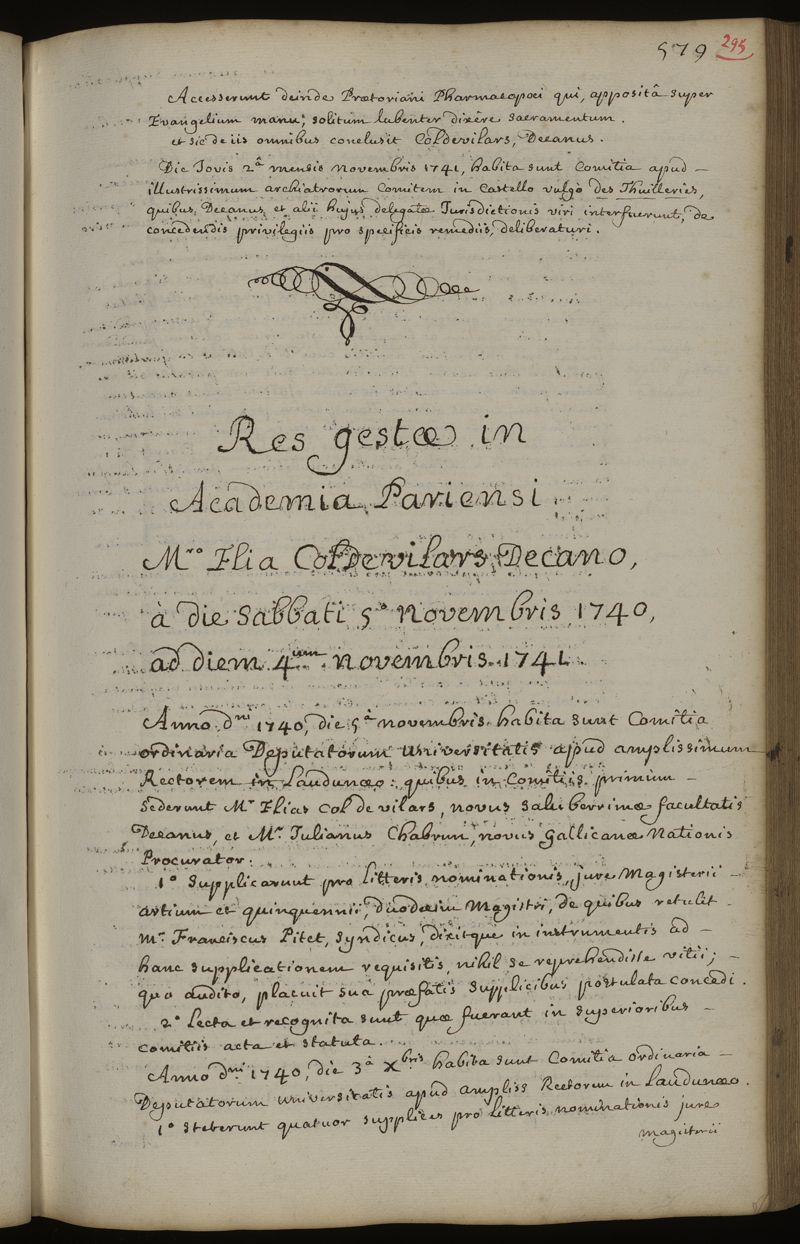 579 295
Accesserunt deinde Prætoriani Pharmacopoei qui, appositâ super
Evangelium manu, solitum lubenter dixêre sacramentum.
et sic de iis omnibus conclusit Col de vilars, Decanus.
Die Jovis 2â mensis novembris 1741, habita sunt Comitia apud –
illustrissimum archiatrorum Comitem in Castello vulgò des Thuilleries,
quibus, Decanus, et alii hujus delegatæ Jurisdictionis viri interfuerunt, de
concedendis privilegiis pro specificis remediis, deliberaturi.
Res gestæ in
Academia Pariensi
M.ro Elia Col de vilars Decano,
à die Sabbati 5a novembris 1740,
ad diem 4um novembris 1741
Anno dni 1740, die 5â novembris habita sunt Comitia
ordinaria Deputatorum universitatis apud amplissimum
Rectorem in Laudunæo: quibus in Comitiis primùm –
sederunt M.r Elias Col de vilars, novus saluberrimæ facultatis
Decanus, et M.r Julianus Chabrun, novus Gallicanæ Nationis
Procurator.
1º Supplicarunt pro litteris nominationis, jure Magisterii –
artium et quinquennii, duodecim Magistri, de quibus retulit –
M.r Franciscus Pitet, Syndicus, dixitque in instrumentis ad –
hanc supplicationem requisitis, nihil se reprehendisse vitii; –
quo audito, placuit sua præfatis supplicibus postulata concedi.
2º Lecta et recognita sunt quæ fuerant in superioribus –
comitiis acta et statuta.
Anno dni 1740, die 3â Xbris habita sunt Comitia ordinaria –
Deputatorum universitatis apud ampliss Rectorem in Laudunæo.
1º steterunt quatuor supplices pro litteris nominationis jure
magisterii